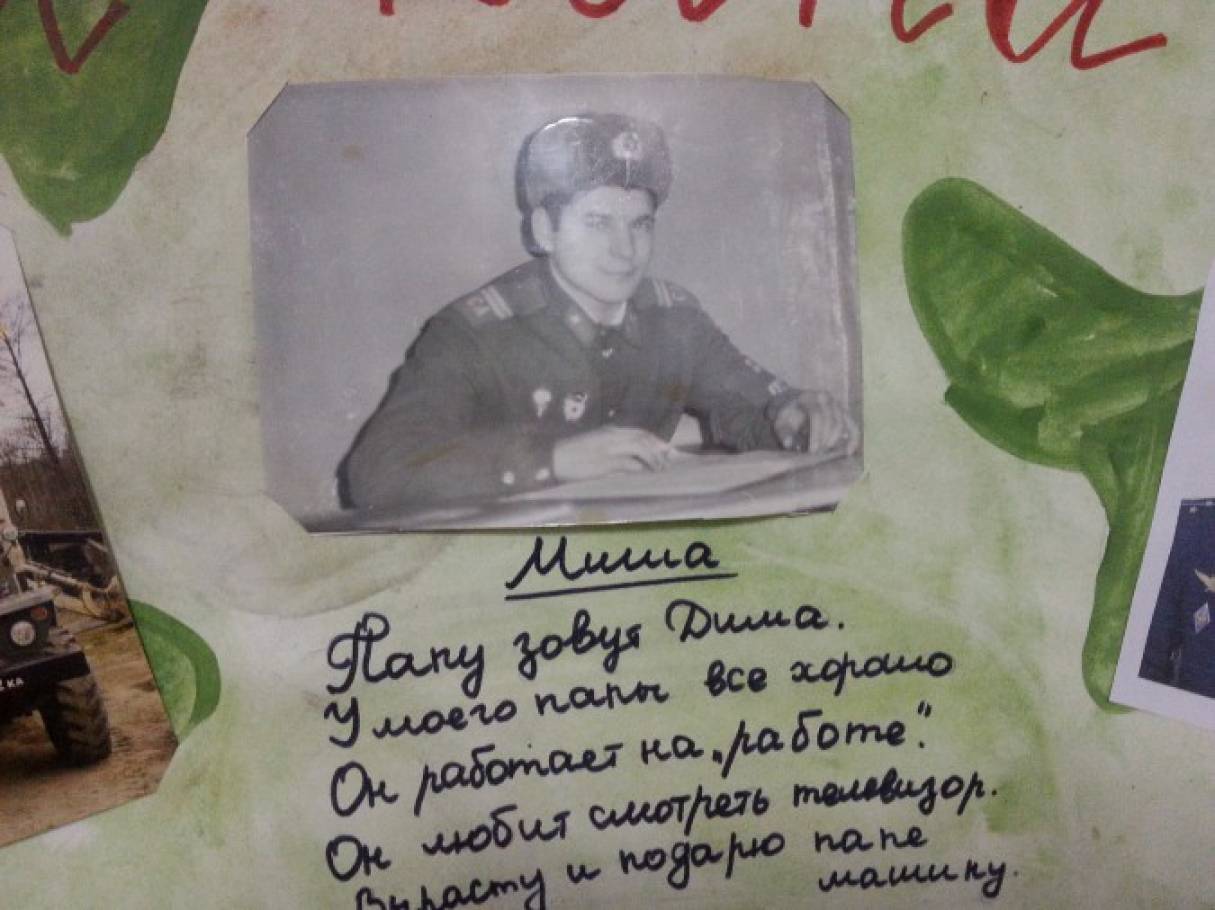 Миша
Папу зовут Дима.
У моего папы все хорошо
Он работает на „работе".
Он любит смотреть телевизор.
Вырасту и подарю папе
машину.
КА